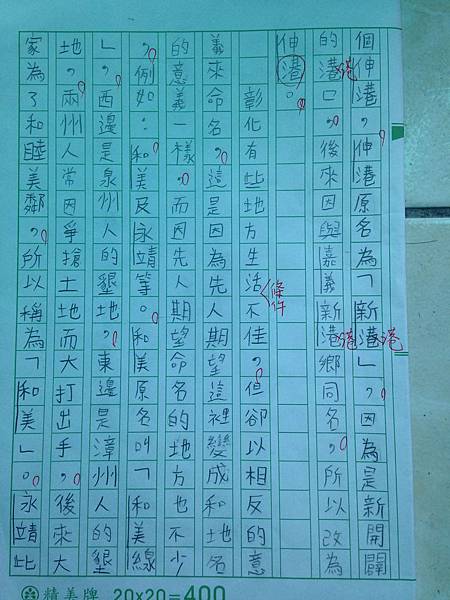 個伸港,伸港原名為「新港」,因為是新開闢
港
的港口,後來因與嘉義新港鄉同名,所以改為
港
港
伸港。
彰化有些地方生活不佳,但卻以相反的意
條件
義來命名,這是因為先人期望這裡變成和地名
的意義一樣,而因先人期望命名的地方也不少
,例如:和美及永靖等。和美原名叫「和美線
」,西邊是泉州人的墾地,東邊是漳州人的墾
地,兩州人常因爭搶土地而大打出手,後來大
家為了和睦美鄰,所以稱為「和美」。永靖此
精美牌 20×20=400